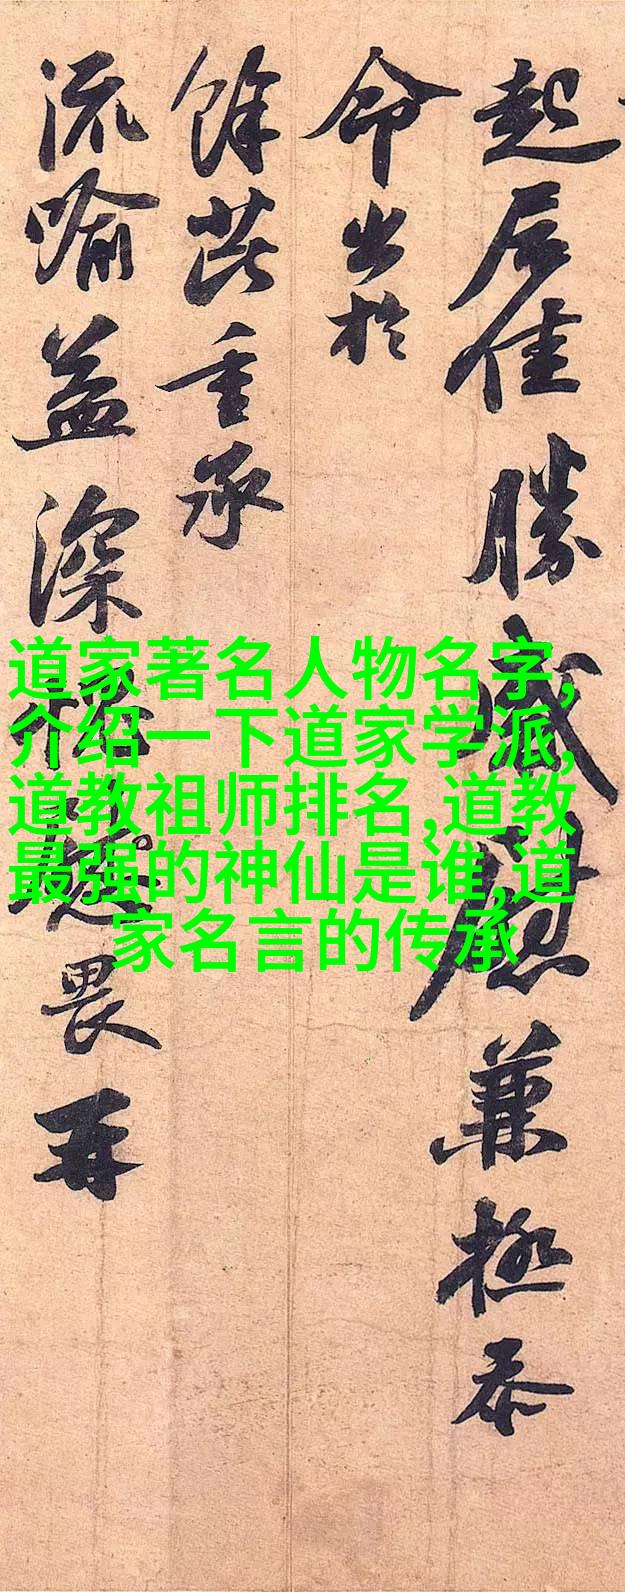 起居佳勝感慰兼極泰
命出於
餘茈重承
流喻益深
畏再
道家著名人物名字,
介绍一下道家学派,
道教祖师排名,道教
最强的神仙是谁,道
家名言的传承